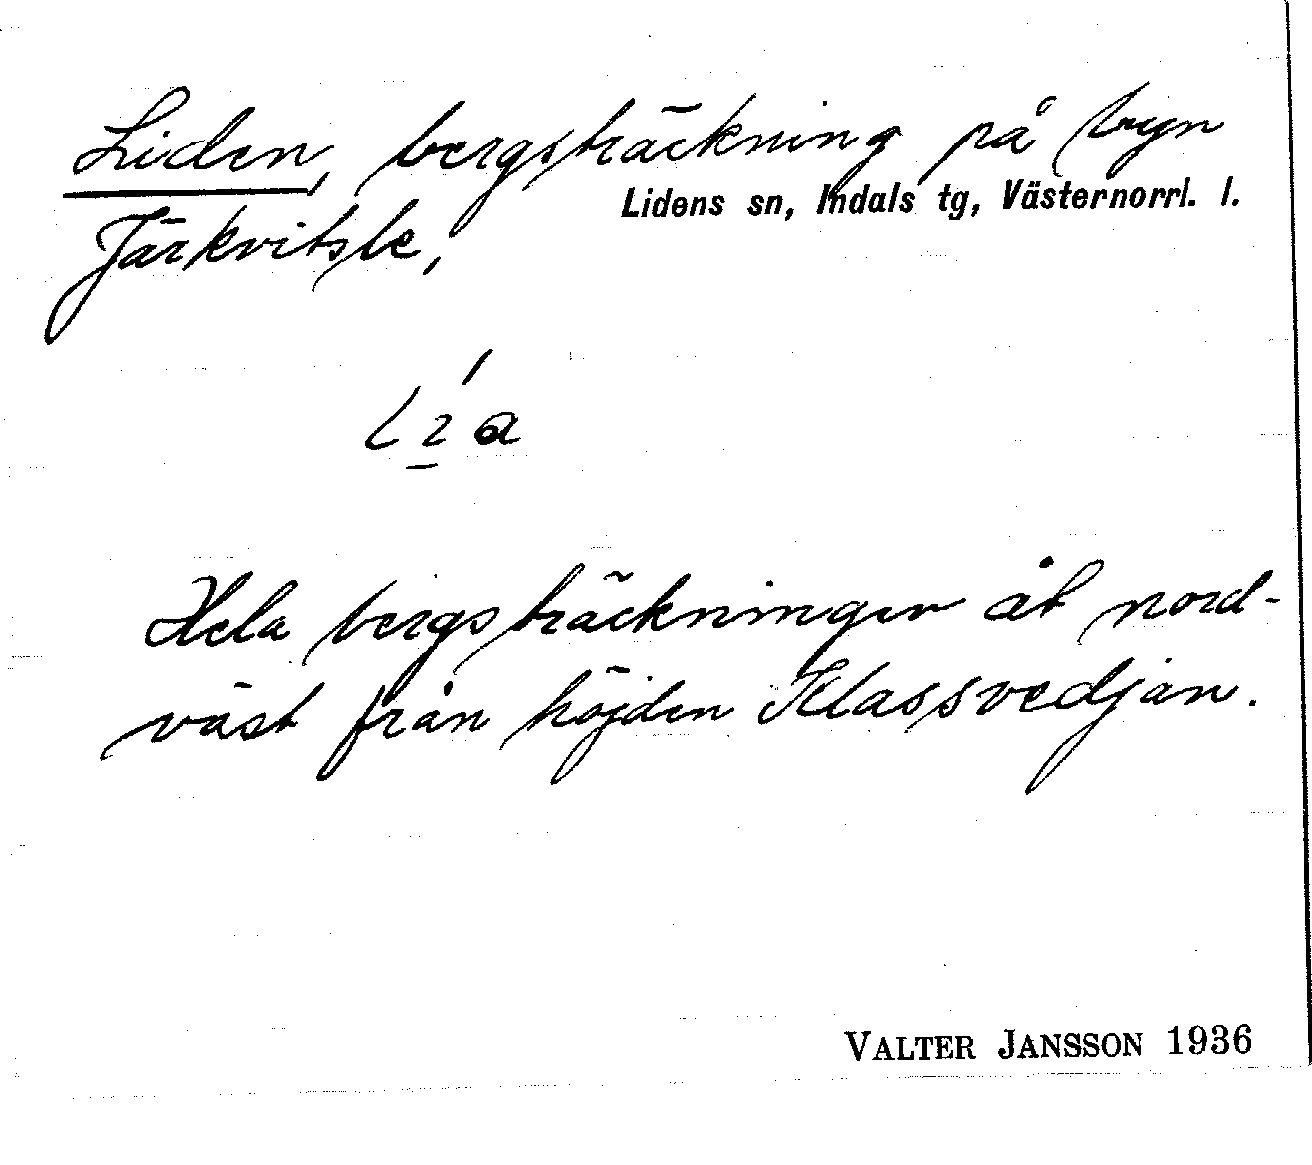 Liden, bergsträckning på byn
Lidens sn, Indals tg, Västernorrl. l.
Järkvitsle,
Hela bergsträckningen åt nord-
väst från höjden Klassvedjan.
VALTER JANSSON 1936